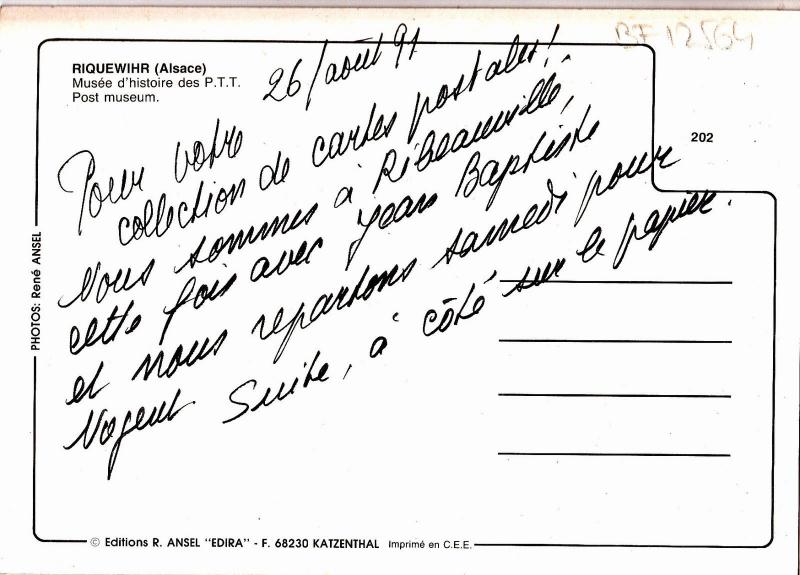 BF 12564
RIQUEWIHR (Alsace)
Musée d'histoire des P.T.T.
Post museum.
202
26/août 91
Pour votre
collection de cartes postales!
Nous sommes à Ribeauvillé,
cette fois avec Jean Baptiste
et nous repartons samedi pour
Nogent. Suite, à côté sur le papier.
PHOTOS: René ANSEL
© Editions R. ANSEL "EDIRA" - F. 68230 KATZENTHAL Imprimé en C.E.E.